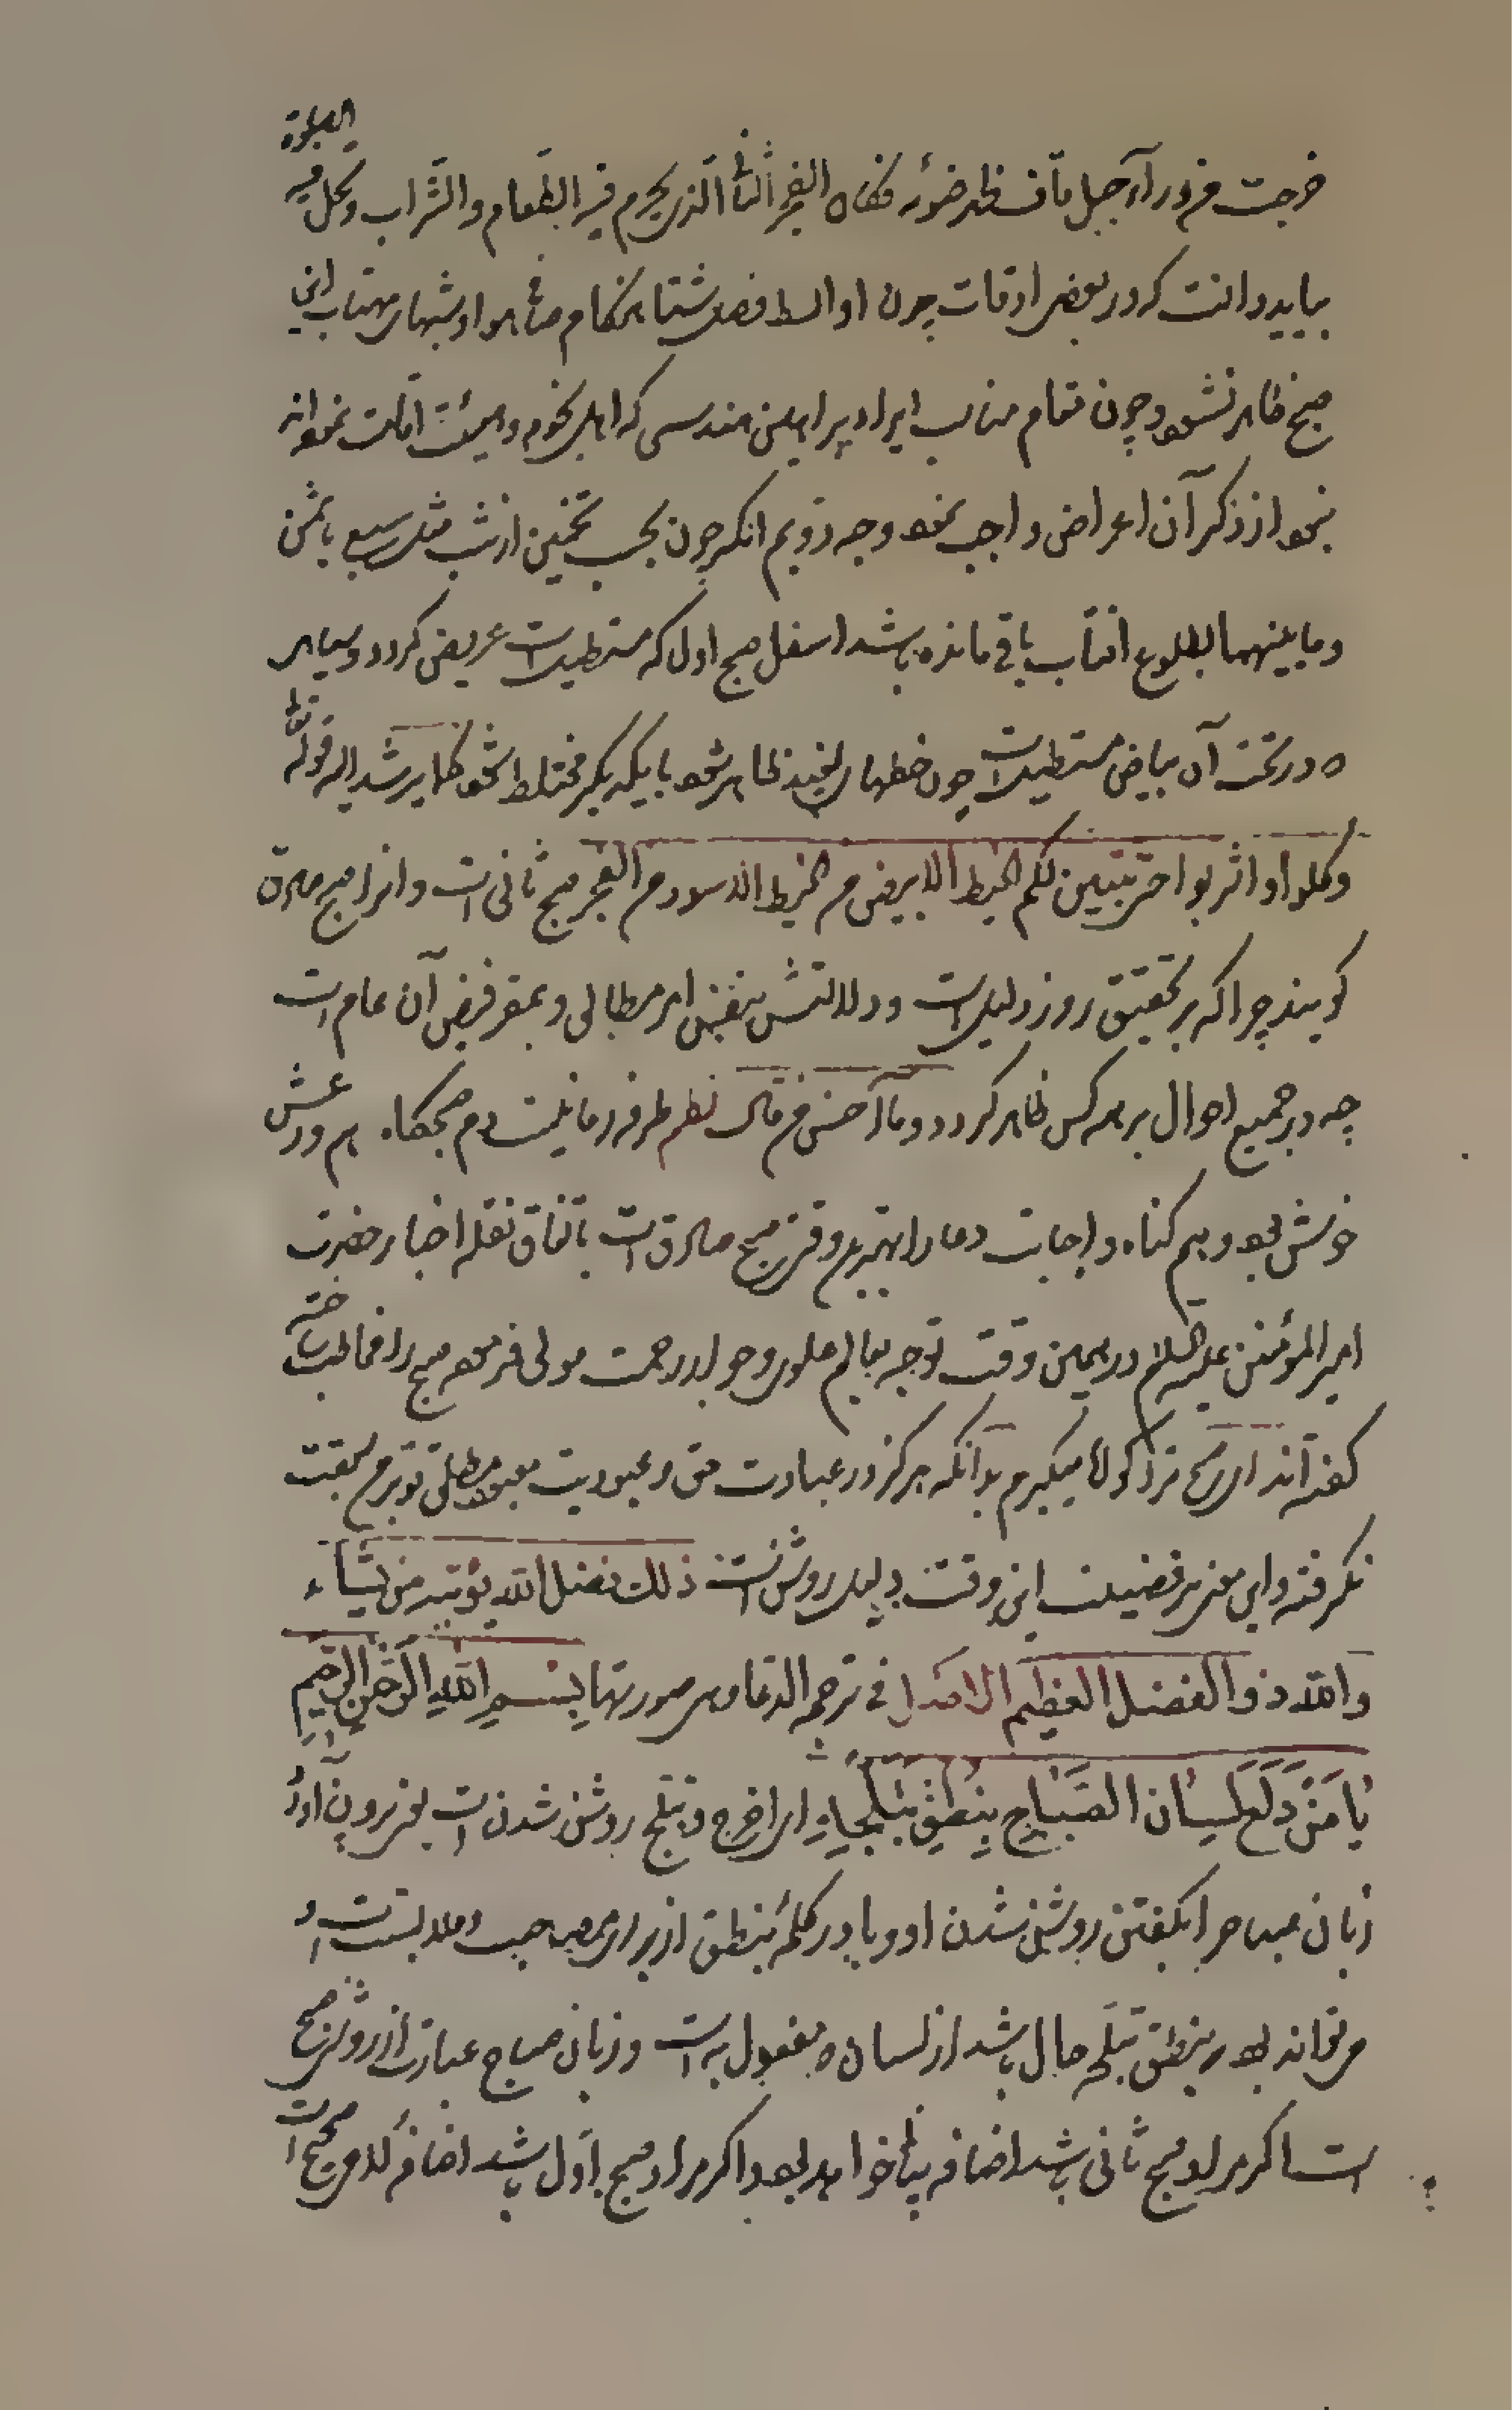 خرجت من وراء جبل قاف فظهر ضوئه فكان الفجر الثانی الذی یحرم فیه الطعام والشراب ویحل فیه الصلوة
بباید دانست که در بعضی اوقات چون اواسط فصل شتا هنکام صافی هوا و شبهای مهتاب این
صبح ظاهر نشود و چون مقام مناسب ایراد براهین هندسی که اهل نجوم و هیئت اقامت نموده‌اند
نبود از ذکر آن اعراض واجب نمود وجه دویم انکه چون بحسب تخمین از شب مثل سبع یا ثمن
وما بینهما بطلوع افتاب باقی مانده باشد اسفل صبح اول که مستطیل است عریض کردد و سیاهی
که در تحت آن بیاض مستطیل است چون خطهای سفید ظاهر شود با یکدیکر مختلط شود کما یرشد الیه قوله تعالی
وكلوا واشربوا حتی یتبین لكم الخیط الابیض من الخیط الاسود من الفجر صبح ثانی است و انرا صبح صادق
کویند چرا که بر تحقیق روز دلیل است و دلالتش بنفس امر مطابق و بمقر فیض آن عام است
چه در جمیع احوال بر هر کس ظاهر کردد وما احسن من قال نظم طرفه زمانیست دم صبحکاه هم ورعش
خوش بود و هم کناه و اجابت دعا را بهترین وقتی صبح صادق است باتفاق نقله اخبار حضرت
امیر المؤمنین علیه السلام در همین وقت توجه بعالم علوی و جوار رحمت مولی فرمود صبح را مخاطب ساخته
کفته‌اند ای صبح ترا کواه میکیرم بدانکه هرکز در عبادت حق و عبودیت معبود مطلق تو بر من سبقت
نکرفته و این معنی بر فضیلت این وقت دلیل روشن است ذلك فضل الله یؤتیه من یشاء
والله ذو الفضل العظیم الاصل فی ترجمة الدعاء وهی صورتها بِسْمِ اللهِ الرَّحْمنِ الرَّحِیمِ
یا مَنْ دَلَعَ لِسانَ الصَّباحِ بِنُطْقِ تَبَلُّجِهِ ای اخرج و تبلج روشن شدن است یعنی بیرون آورد
زبان صباح را بکفتن روشن شدن او و با در کلمهٔ بنطق از برای مصاحبت و ملابست است و
می‌تواند بود بنطق تبلجه حال باشد از لسان که مفعول به است و زبان صباح عبارت از روشنی صبح
است اکر مراد صبح ثانی باشد اضافه بیانی خواهد بود و اکر مراد صبح اول باشد اضافهٔ لامی صحیح است